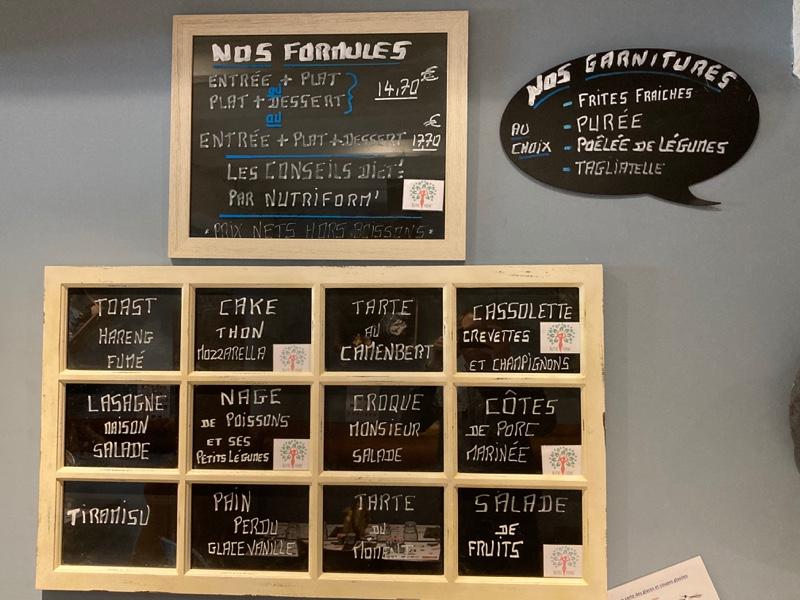 NOS FORMULES
ENTRÉE + PLAT
OU
PLAT + DESSERT
14,70€
OU
ENTRÉE + PLAT + DESSERT 1770€
LES CONSEILS DIET!
PAR NUTRIFORM'
*PRIX NETS HORS BOISSONS*
NOS GARNITURES
AU CHOIX
- FRITES FRAICHES
- PURÉE
- POÊLÉE DE LÉGUMES
- TAGLIATELLE
TOAST
HARENG
FUMÉ
CAKE
THON
MOZZARELLA
TARTE
AU
CAMENBERT
CASSOLETTE
CREVETTES
ET CHAMPIGNONS
LASAGNE
MAISON
SALADE
NAGE
DE POISSONS
ET SES
PETITS LÉGUMES
CROQUE
MONSIEUR
SALADE
CÔTES
DE PORC
MARINÉE
TIRAMISU
PAIN
PERDU
GLACE VANILLE
TARTE
DU
MOMENT
SALADE
DE
FRUITS
carte des glaces et coupes glacées